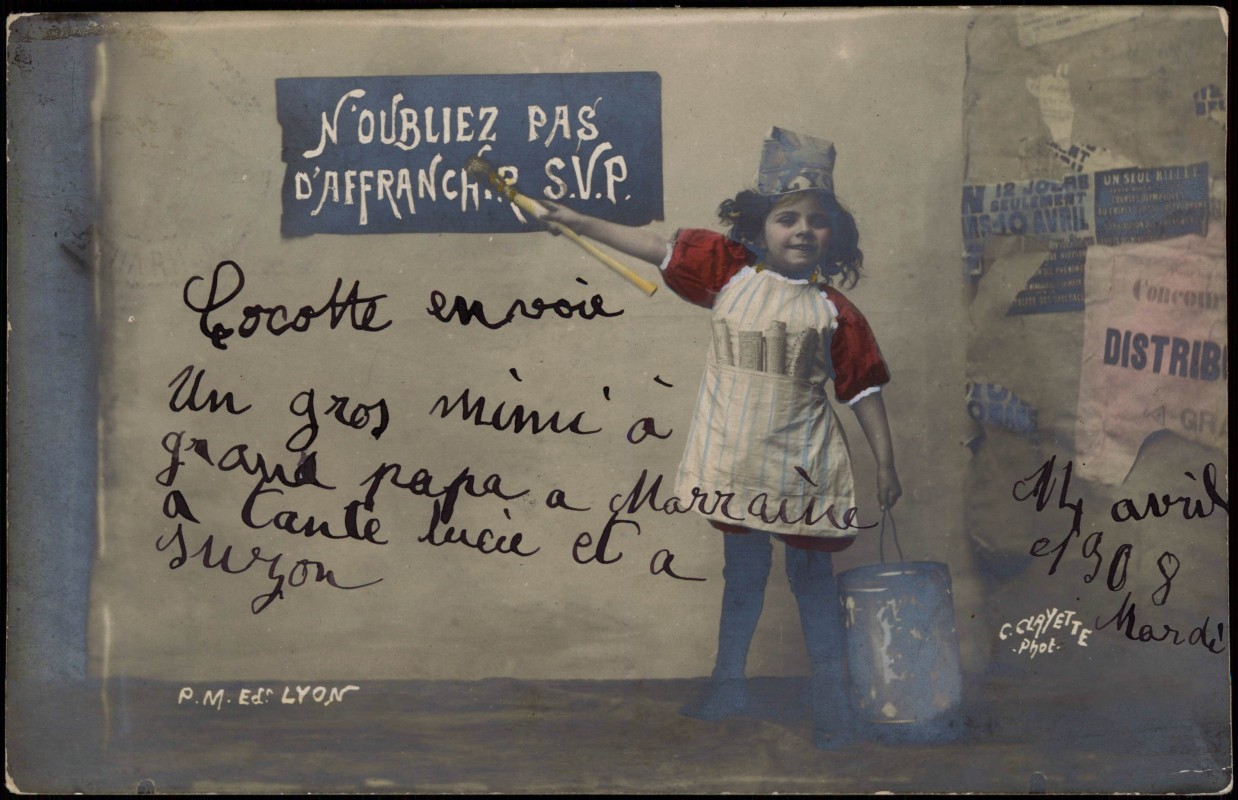 N'OUBLIEZ PAS
D'AFFRANCHIR S.V.P.
Cocotte envoie
Un gros mimi à
grand papa a Marraine
a tante lucie et a
suzon
14 avril
1908
Mardi
C. CLAYETTE
Phot.
P.M. Edr. LYON
12 JOURS
SEULEMENT
10 AVRIL
UN SEUL BILLET
Concour
DISTRIB
GRA